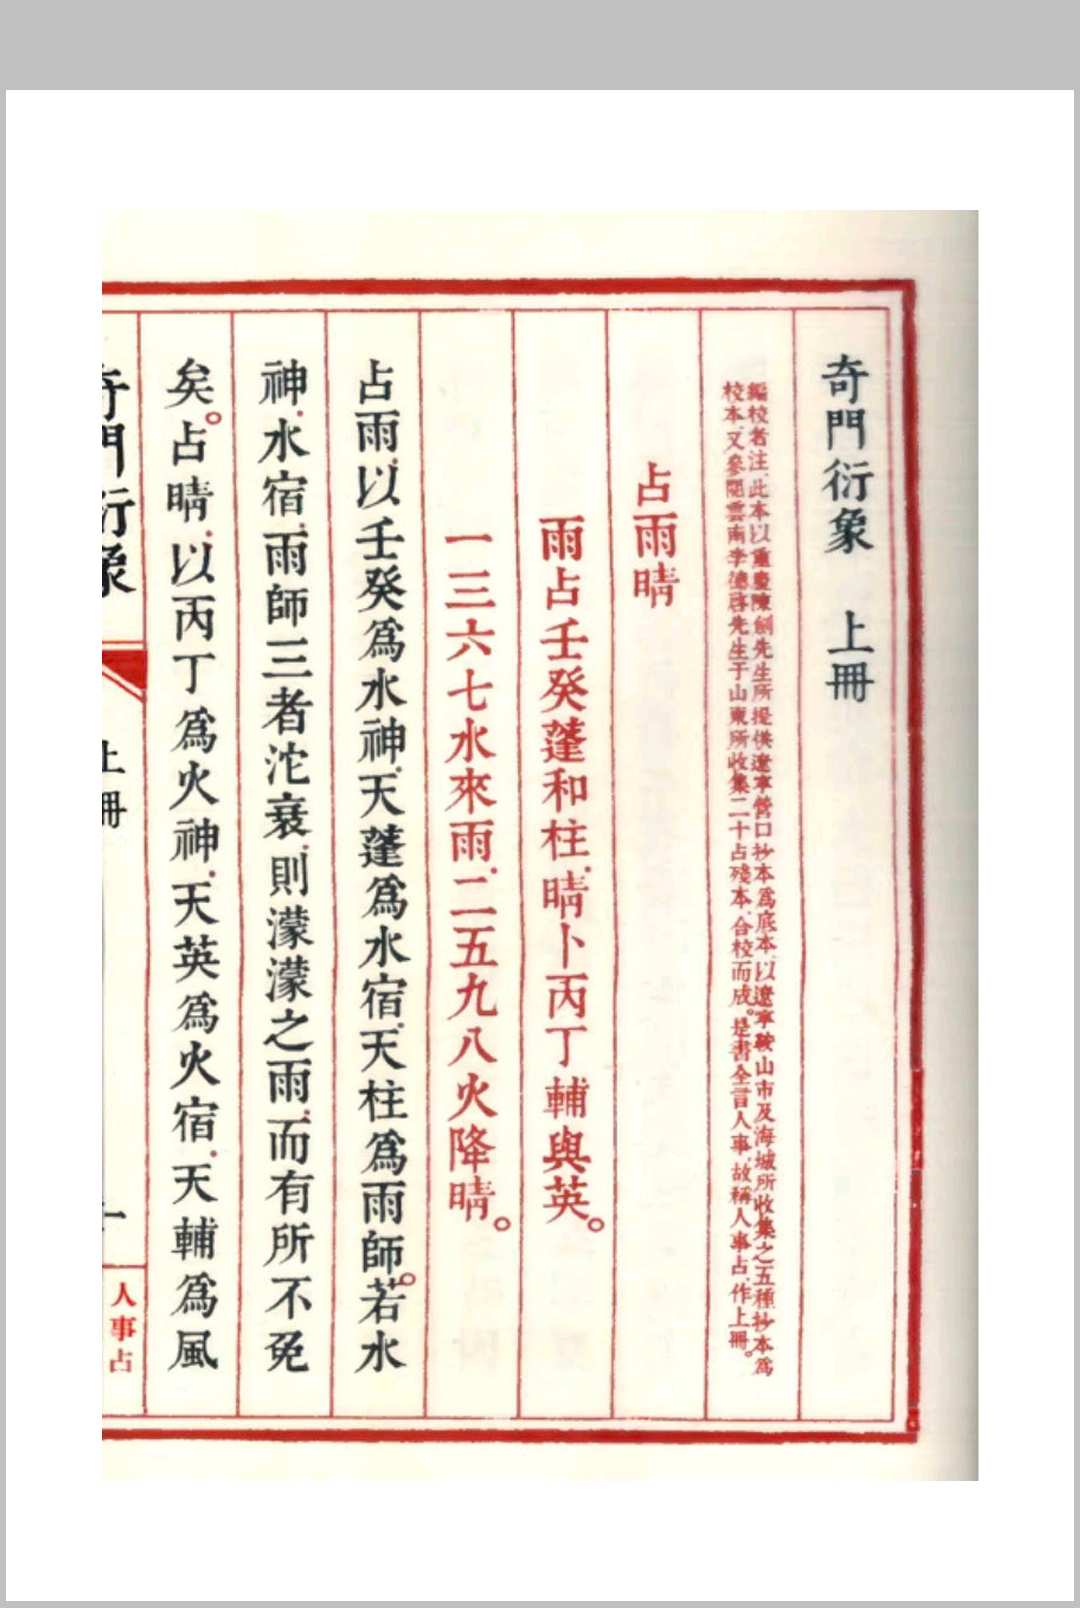 奇門衍象　上冊
編校者注、此本以重慶陳劍先生所提供遼寧營口抄本爲底本、以遼寧鞍山市及海城所收集之五種抄本爲
校本、又參閱雲南李德啓先生于山東所收集二十占殘本、合校而成。是書全言人事、故稱人事占、作上冊。
占雨晴
雨占壬癸蓬和柱、晴卜丙丁輔與英。
一三六七水來雨、二五九八火降晴。
占雨、以壬癸爲水神、天蓬爲水宿、天柱爲雨師。若水
神、水宿、雨師三者沱衰、則濛濛之雨、而有所不免
矣。占晴、以丙丁爲火神、天英爲火宿、天輔爲風
奇門衍象
上冊
一
人事占